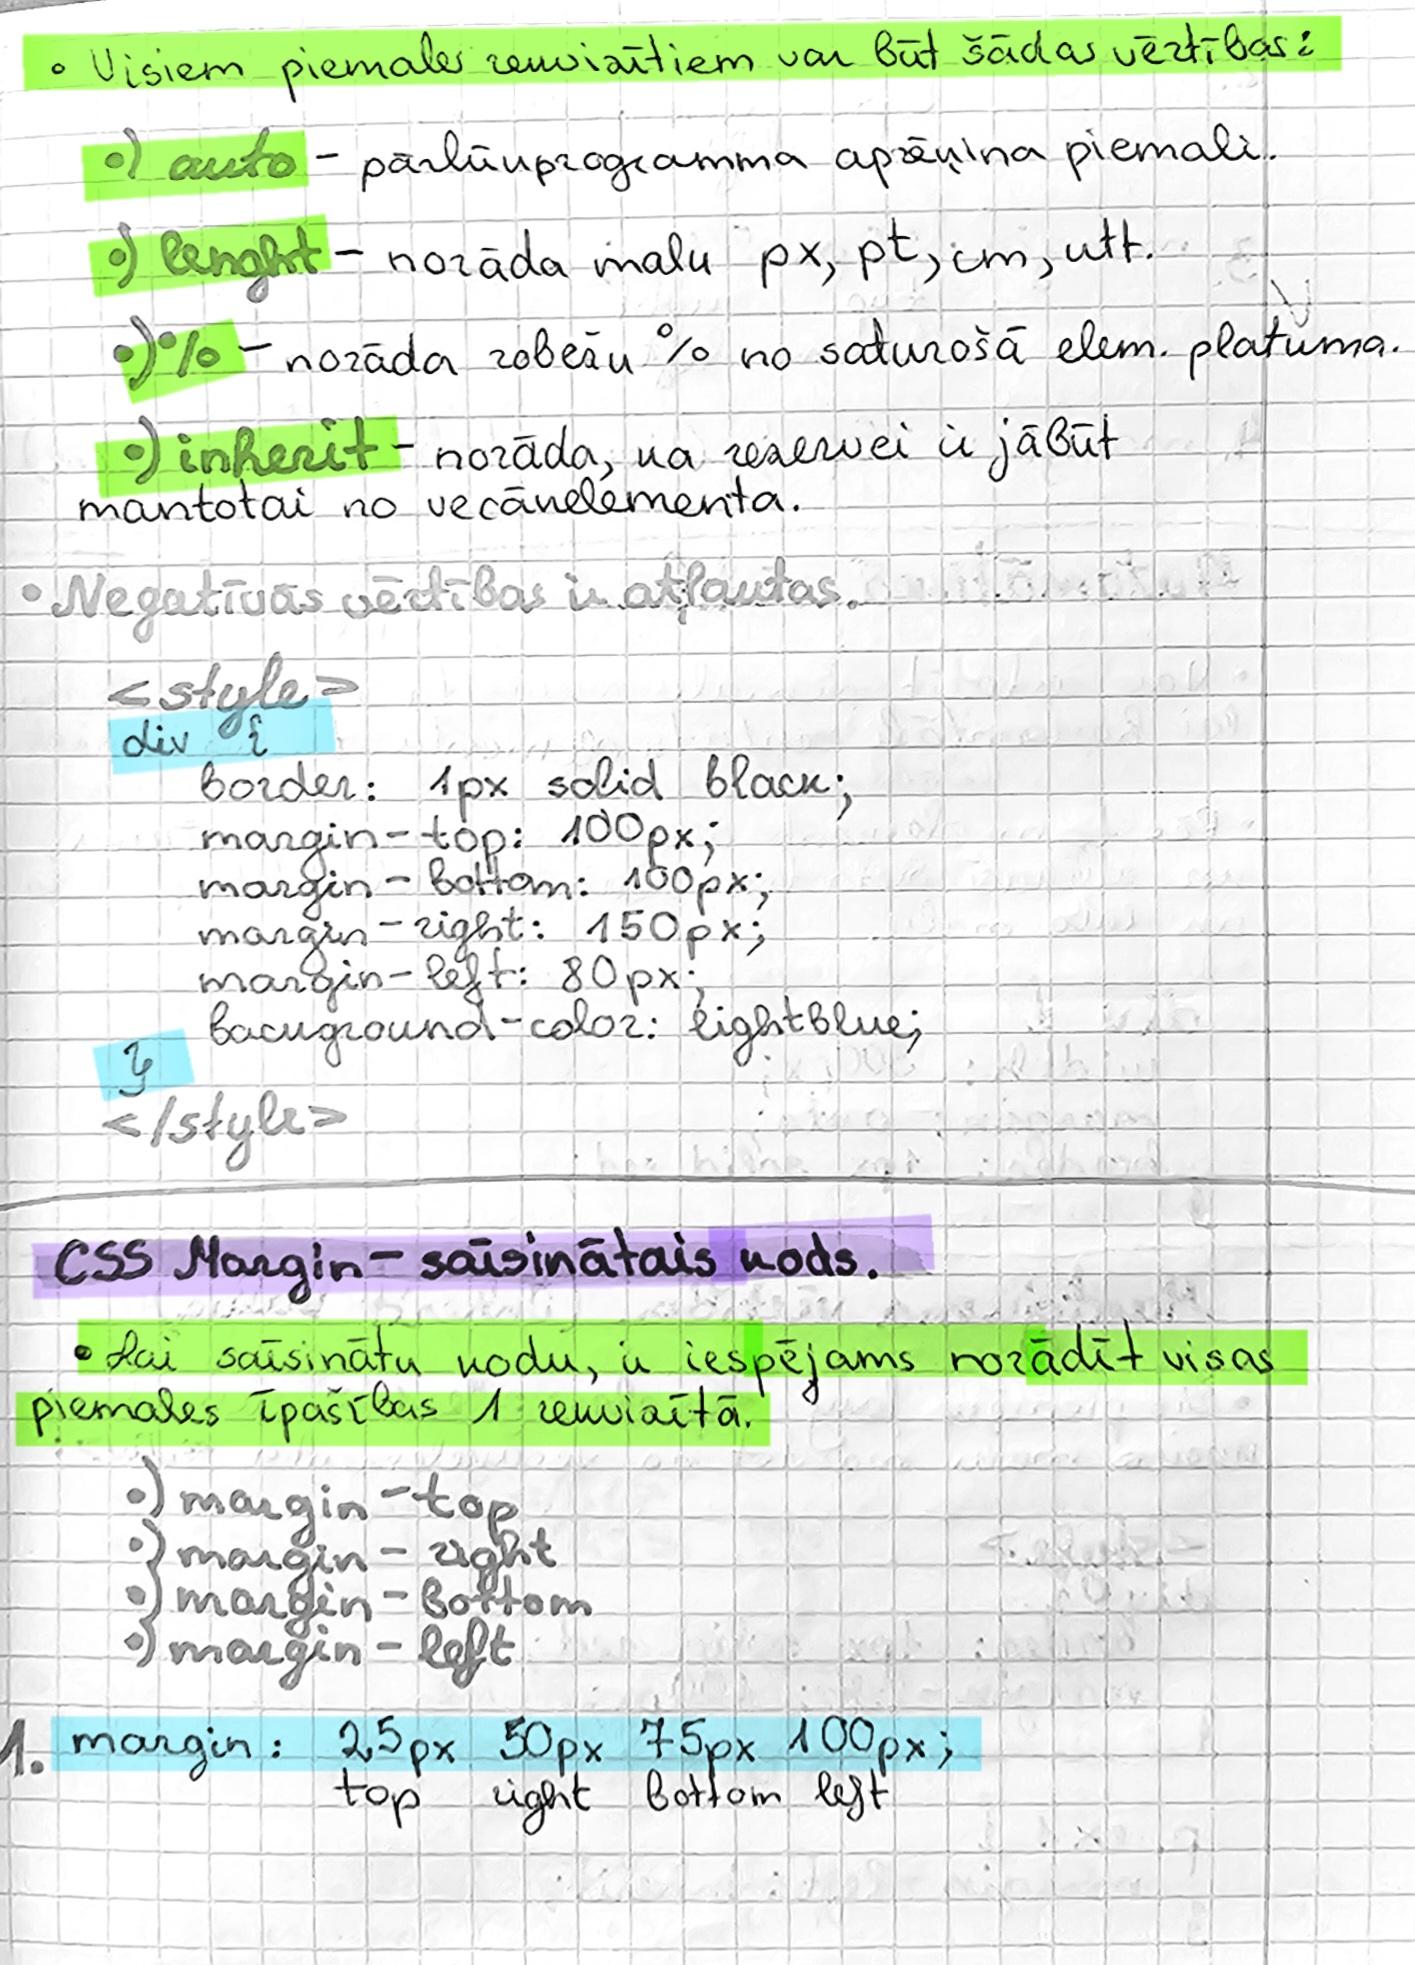 • Visiem piemales rekvizītiem var būt šādas vērtības:
•) auto - pārlūkprogramma aprēķina piemali.
•) lenght - norāda malu px, pt, cm, utt.
•) % - norāda robežu % no saturošā elem. platuma.
•) inherit - norāda, ka rezervei ir jābūt
mantotai no vecākelementa.
• Negatīvās vērtības ir atļautas.
<style>
div {
border: 1px solid black;
margin-top: 100px;
margin-bottom: 100px;
margin-right: 150px;
margin-left: 80px;
background-color: lightblue;
}
</style>
CSS Margin - saīsinātais kods.
• Lai saīsinātu kodu, ir iespējams norādīt visas
piemales īpašības 1 rekvizītā.
•) margin-top
•) margin-right
•) margin-bottom
•) margin-left
1. margin: 25px 50px 75px 100px;
top right bottom left